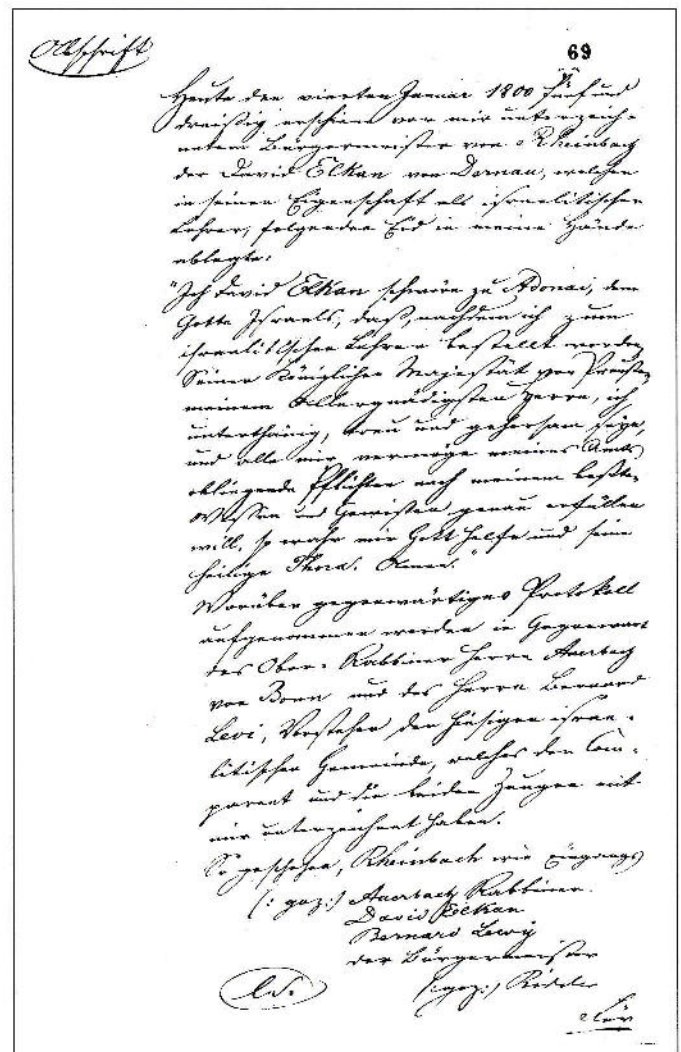 Abschrift
69
Heute den vierten Januar 1800 fünf und
dreißig erschien vor mir unterzeich-
netem Bürgermeister von Rheinbach
der David Elkan von Dernau, welcher
in seiner Eigenschaft als israelitischer
Lehrer, folgenden Eid in meine Hände
ablegte:
"Ich David Elkan schwöre zu Adonai, dem
Gotte Israels, daß, nachdem ich zum
israelitischen Lehrer bestellt worden,
Seiner Königlichen Majestät von Preußen
meinem Allergnädigsten Herrn, ich
unterthänig, treu und gehorsam seyn,
und alle mir vermöge meines Amts
obliegende Pflichten nach meinem besten
Wissen und Gewissen genau erfüllen
will, so wahr mir Gott helfe und seine
heilige Thora. Amen."
Worüber gegenwärtiges Protokoll
aufgenommen worden in Gegenwart
des Ober-Rabbiner Herrn Auerbach
von Bonn und des Herrn Bernard
Levi, Vorsteher der hiesigen israe-
litischen Gemeinde, welches der Com-
parent und die beiden Zeugen mit
mir unterzeichnet haben.
So geschehen, Rheinbach wie Eingangs
(: gez:) Auerbach Rabbiner.
David Elkan
Bernard Lewÿ
der Bürgermeister
(gez:)
L.S.